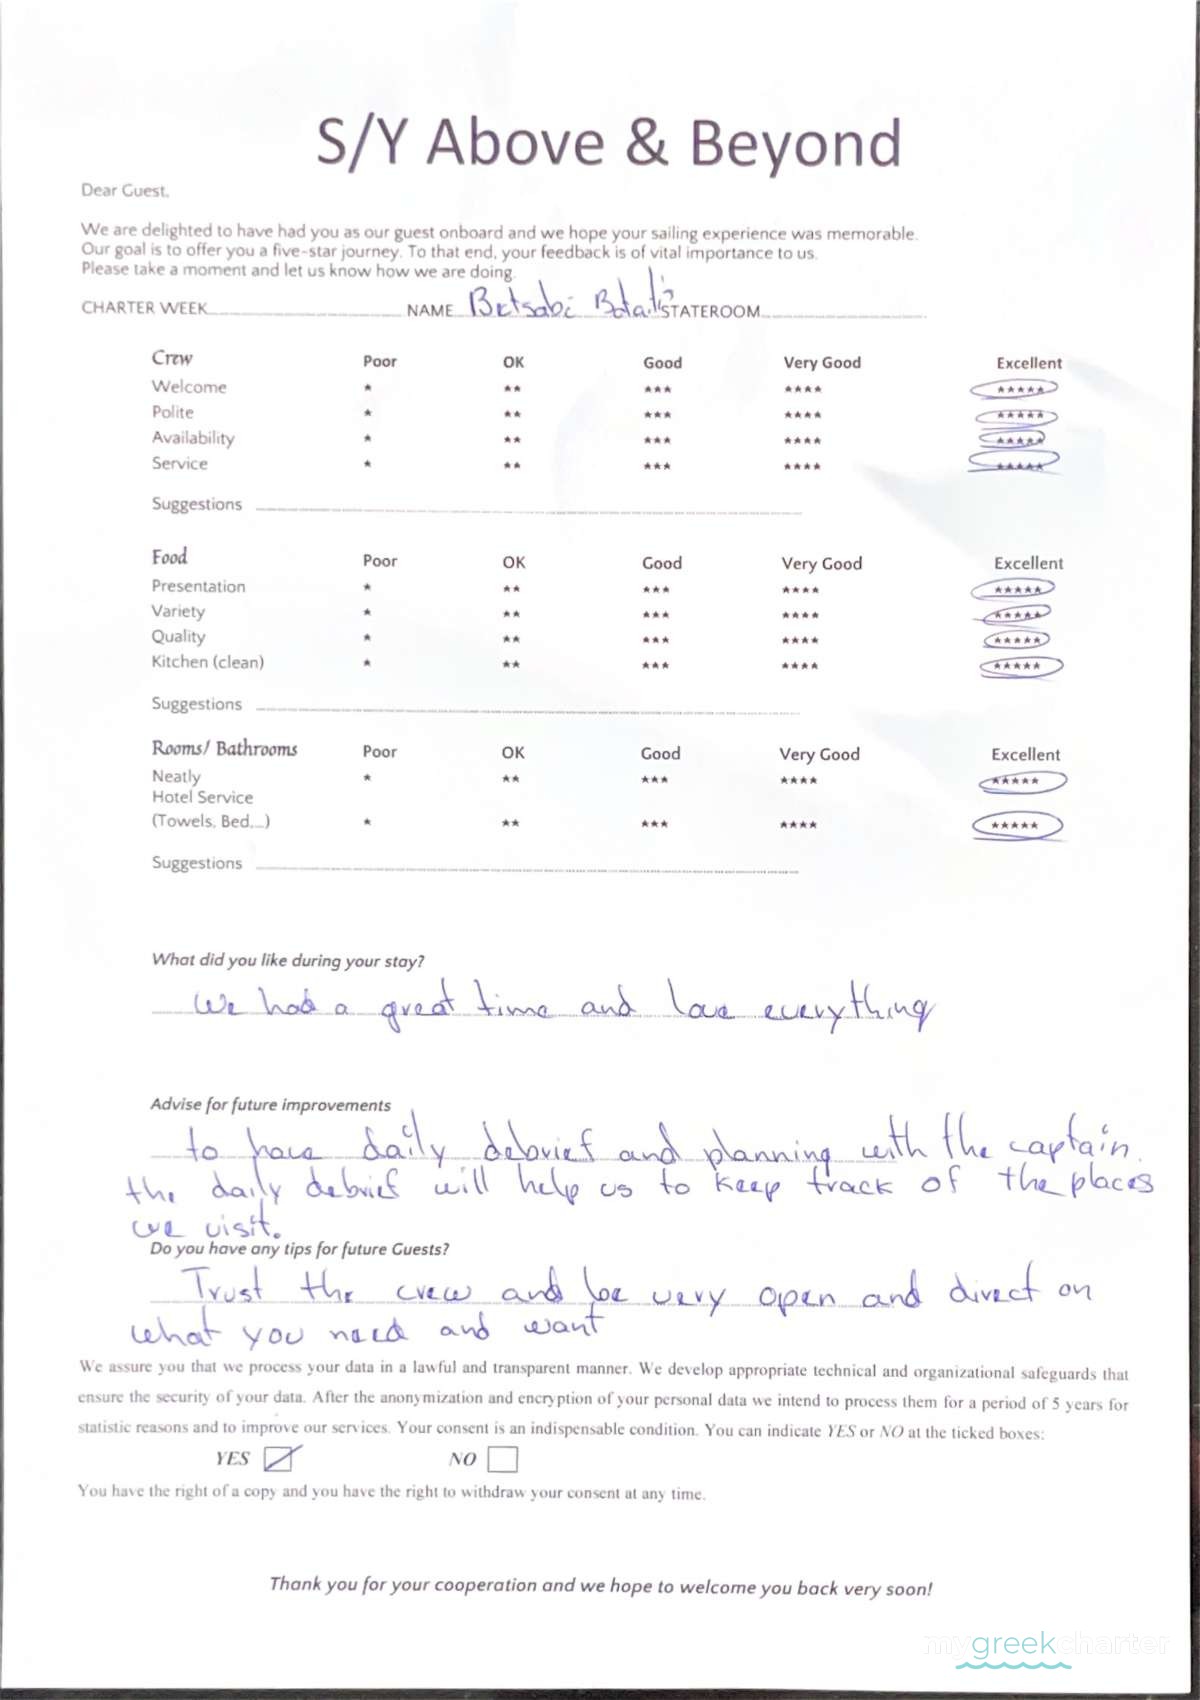 S/Y Above & Beyond
Dear Guest,
We are delighted to have had you as our guest onboard and we hope your sailing experience was memorable.
Our goal is to offer you a five-star journey. To that end, your feedback is of vital importance to us.
Please take a moment and let us know how we are doing.
CHARTER WEEK NAME Betsabi STATEROOM
Crew Poor OK Good Very Good Excellent
Welcome * ** *** **** *****
Polite * ** *** **** *****
Availability * ** *** **** *****
Service * ** *** **** *****
Suggestions
Food Poor OK Good Very Good Excellent
Presentation * ** *** **** *****
Variety * ** *** **** *****
Quality * ** *** **** *****
Kitchen (clean) * ** *** **** *****
Suggestions
Rooms/ Bathrooms Poor OK Good Very Good Excellent
Neatly * ** *** **** *****
Hotel Service
(Towels, Bed,...) * ** *** **** *****
Suggestions
What did you like during your stay?
We had a great time and love everything
Advise for future improvements
to have daily debrief and planning with the captain.
the daily debrief will help us to keep track of the places
we visit.
Do you have any tips for future Guests?
Trust the crew and be very open and direct on
what you need and want
We assure you that we process your data in a lawful and transparent manner. We develop appropriate technical and organizational safeguards that
ensure the security of your data. After the anonymization and encryption of your personal data we intend to process them for a period of 5 years for
statistic reasons and to improve our services. Your consent is an indispensable condition. You can indicate YES or NO at the ticked boxes:
YES NO
You have the right of a copy and you have the right to withdraw your consent at any time.
Thank you for your cooperation and we hope to welcome you back very soon!
mygreekcharter